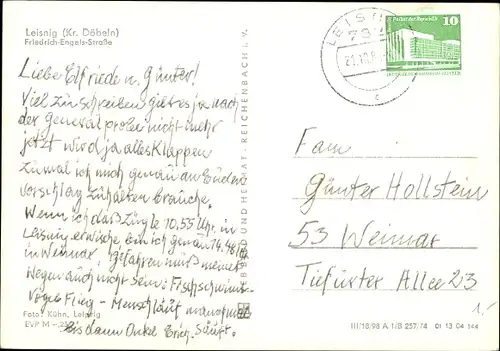 Leisnig (Kr. Döbeln)
Friedrich-Engels-Straße
Liebe Elfriede u. Günter!
Viel zu schreiben gibt es ja nach
der Generalprobe nicht mehr
jetzt wird ja alles klappen
zumal ich mich genau an Euden
vorschlag zuhalten brauche.
Wenn ich daß Zügle 10.55 Uhr, in
Leisnig erwische, bin ich genau 14.48
in Weimar. Gefahren muß meinet
wegen auch nicht sein: Fisch schwimmt
Vögel Flieg - Mensch läuft
bis dann Onkel Erich. Säuft.
Foto: Kühn, Leipzig
EVP M -,25
BILD UND HEIMAT · REICHENBACH I. V.
LEISNIG
Palast der Republik
10
Fam
Günter Hollstein
53 Weimar
Tiefurter Allee 23
III/18/98 A 1/B 257/74 01 13 04 144